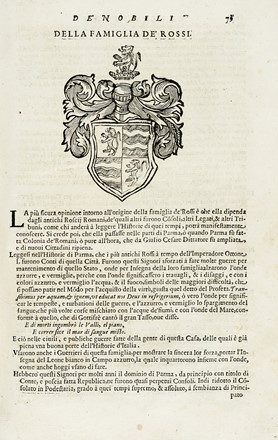 DE NOBILI 78
DELLA FAMIGLIA DE' ROSSI.
LA più sicura opinione intorno all'origine della famiglia de' Rossi è che ella dipenda
dagli antichi Roscij Romani, de' quali altri furono Cõsoli, altri Legati, & altri Tri
buni, come chi anderà à leggere l'Historie di quei tempi, potrà manifestamente
conoscere. Si crede poi, che ella passasse nelle parti di Parma, ò quando Parma fù fat-
ta Colonia de' Romani, ò pure all'hora, che da Giulio Cesare Dittatore fù ampliata,
e di nuoui Cittadini ripiena.
Leggesi nell'Historie di Parma, che i più antichi Rossi à tempo dell'Imperadore Ottone,
furono Conti di quella Città. Furono questi Signori sforzati à fare molte guerre per
mantenimento di quello Stato, onde per Insegna della loro famiglia alzarono l'onde
azzurre, e vermiglie, perche con l'onde significauano i trauagli, & i disaggi, e con i
colori azzurro, e vermiglio l'acqua, & il fuoco, simboli delle maggiori difficoltà, che
si possono patir nel Mõdo per l'acquisto della virtù, giusta quel detto del Profeta. Tran-
siuimus per aquam, & ignem, & educat nos Deus in refrigerium, ò vero l'onde per signifi-
care le tempeste, e turbationi delle guerre, e l'azzurro, e vermiglio lo spargimento del
sangue, che più volte corse mischiato con l'acque de' fiumi, e con l'onde del Mare, confor-
E di morti ingombrò le Valli, ei piani,
E correr fece il mar di sangue misto.
E ciò nelle ciuili, e publiche guerre fatte della gente di questa Casa, delle quali è già
piena vna buona parte dell'Historie d'Italia.
Vsarono anche i Guerrieri di questa famiglia, per mostrare la sincera lor forza, portar l'In-
segna del Leone bianco in Campo azzurro, la quale inquartarono insieme con l'onde,
come anche hoggi vsano di fare.
Hebbero questi Signori per molti anni il dominio di Parma, da principio con titolo di
Conte, e poscia fatta Republica, ne furono quasi perpetui Consoli. Indi ridotto il Cõso-
lato in Podestaria, grado à quei tempi supremo, & assoluto, à sembianza di Princi-
pato